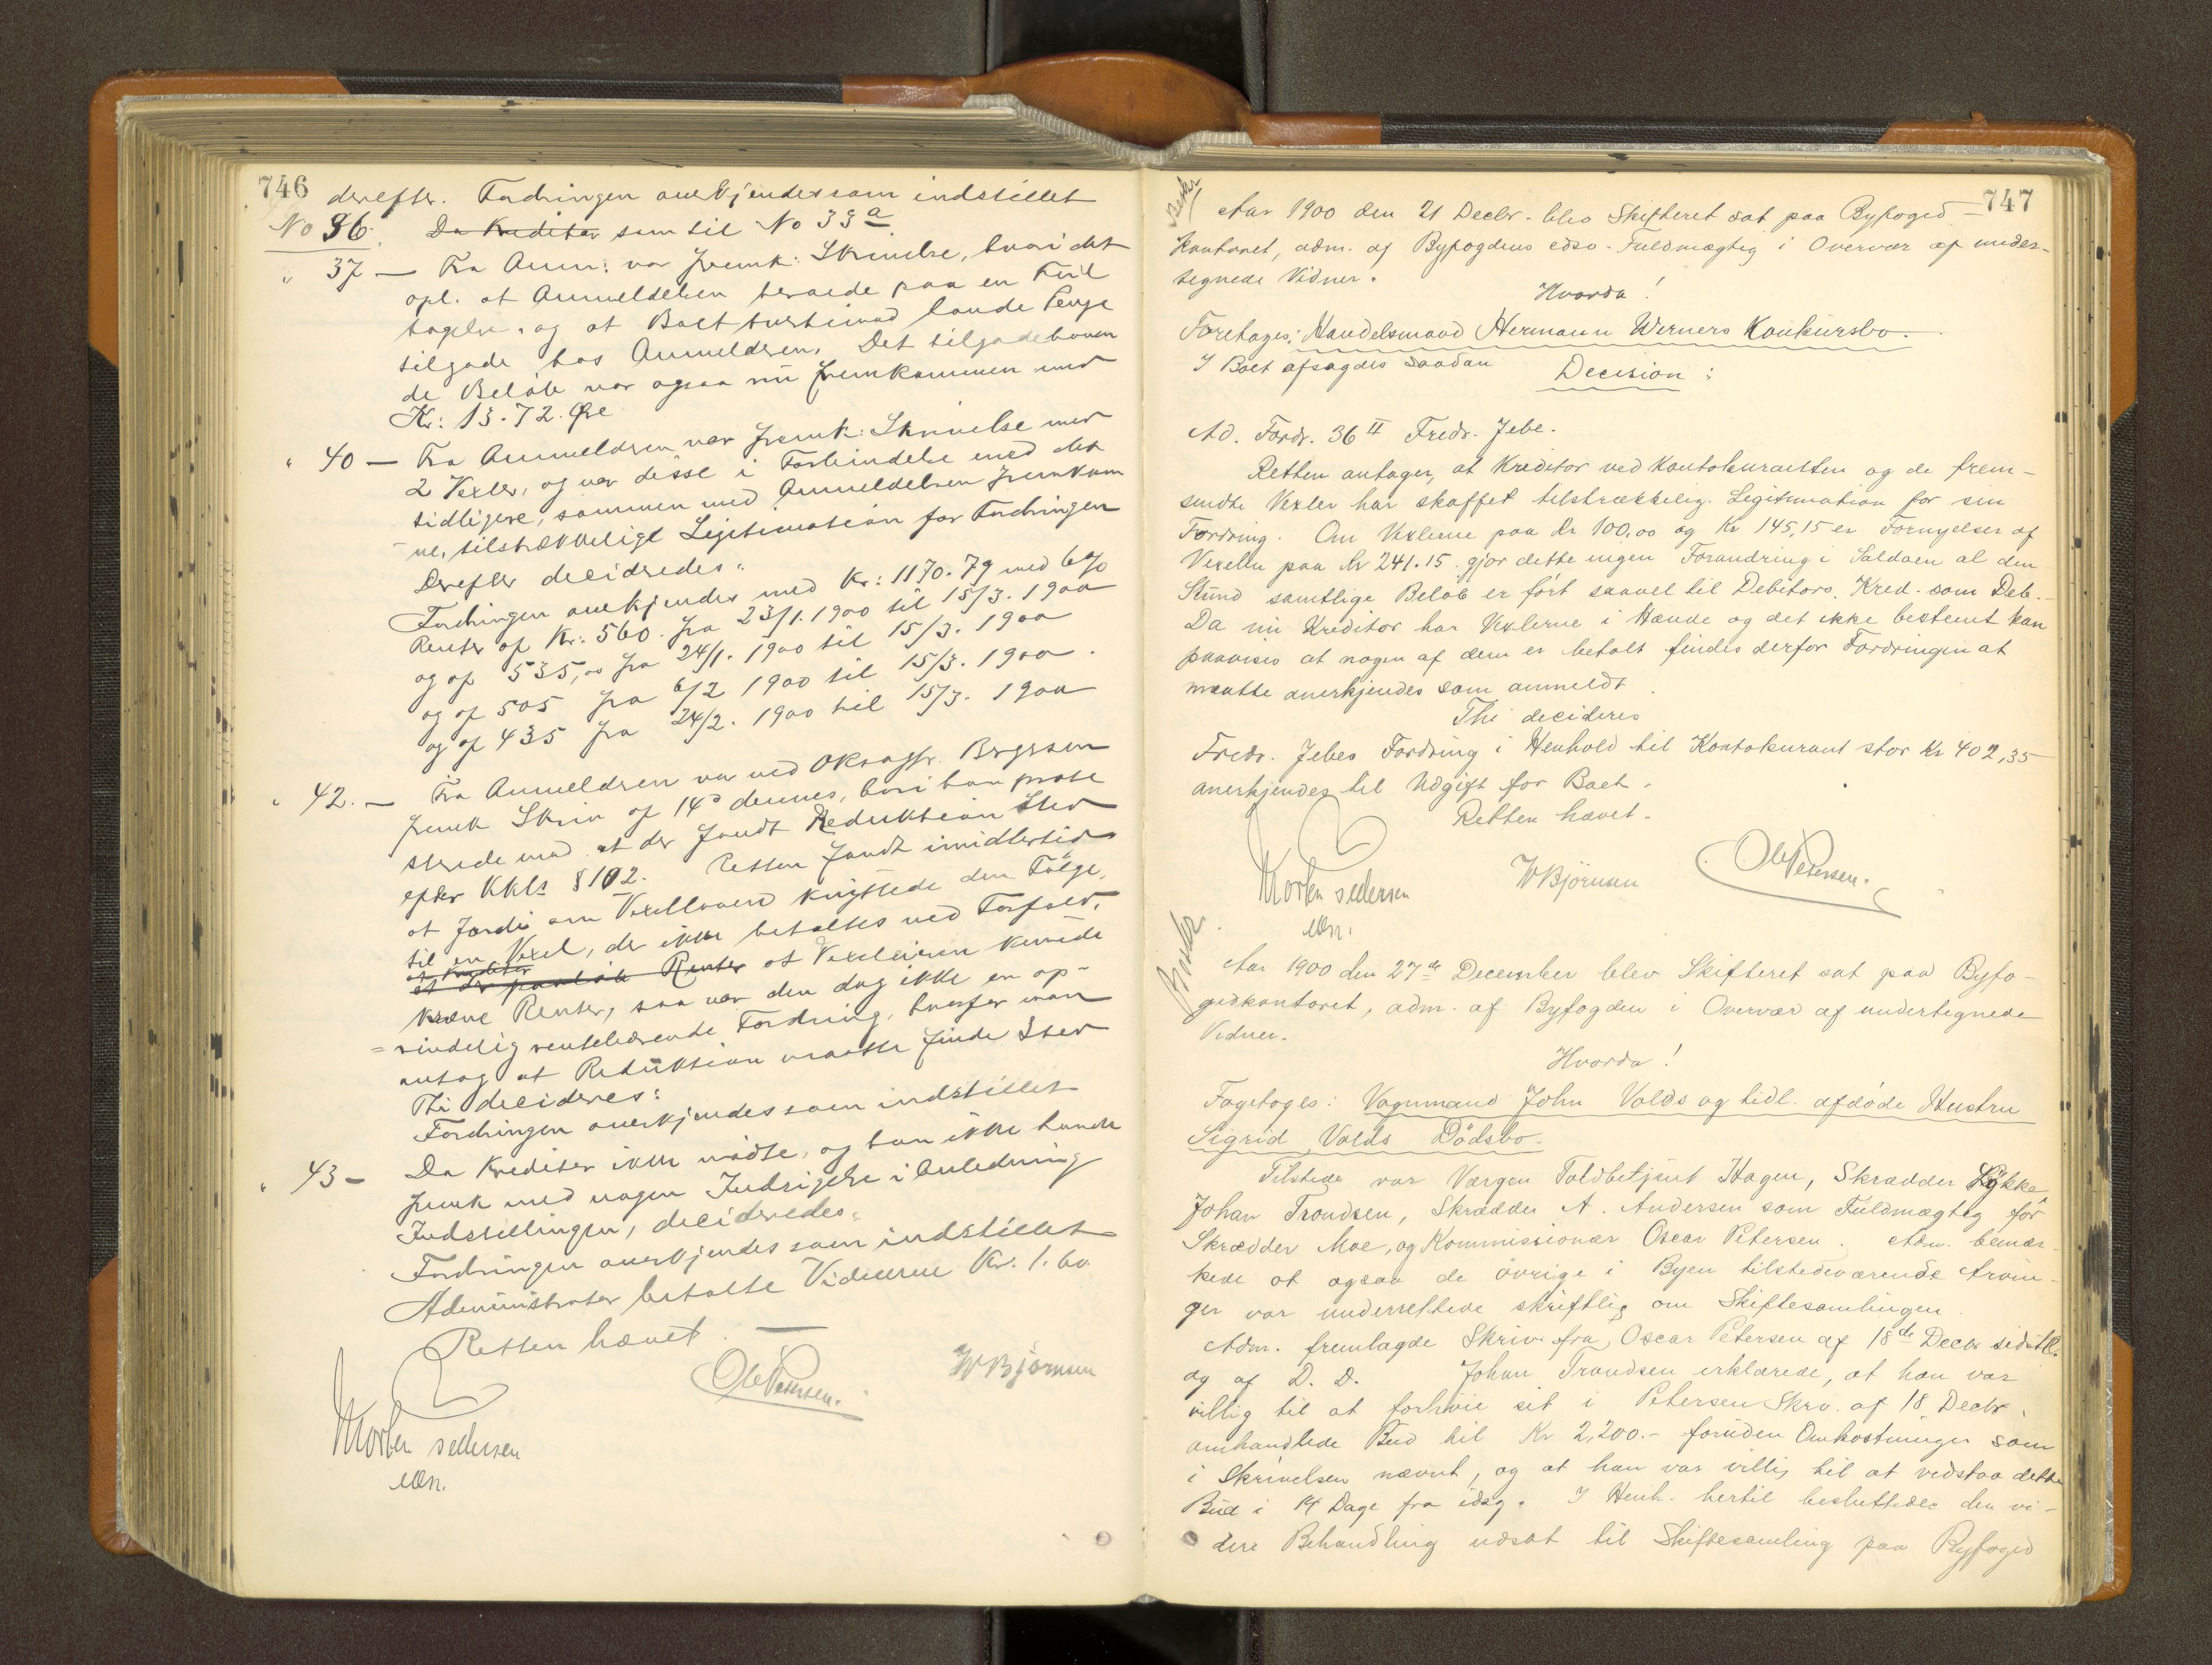 746
derefter. Fordringen anerkjendes som indstillet
No 36. Da Kreditor som til No 33a
" 37 — Fra Anm: var fremk: Skrivelse, hvori det
opl. at Anmeldelsen beroede paa en Feil
tagelse, og at Boet tvertimod havde Penge
tilgode hos Anmelderen. Det tilgodehaven
de Beløb var ogsaa nu fremkommen med
Kr: 13.72 Øre
" 40 — Fra Anmelderen var fremk: Skrivelse med
2 Vexler, og var disse i Forbindelse med det
tidligere, sammen med Anmeldelsen fremkom
ne, tilstrækkeligt Legitimation for Fordringen
Derefter decideredes:
Fordringen anerkjendes med Kr: 1170.79 med 6%
Renter af Kr. 560. fra 23/1. 1900 til 15/3. 1900
og af 535,00 fra 24/1. 1900 til 15/3. 1900
og af 505 fra 6/2 1900 til 15/3. 1900.
og af 435 fra 24/2. 1900 til 15/3. 1900
" 42. — Fra Anmelderen var ved Oksagfr. Bergesen
fremk Skriv af 14d dennes, hvori han prote
sterede mod at der fandt Reduktion Sted
efter Kkls § 102. Retten fandt imidlertid
at fordi om Vexelloven knyttede den Følge,
til en Vexel, der ikke betaltes ved Forfald,
at Kreditor
at der paaløb Renter at Vexeleieren kunde
kræve Renter, saa var den dog ikke en op-
=rindelig rentebærende Fordring, hvorfor man
antog at Reduktion maatte finde Sted
Thi decideres:
Fordringen anerkjendes som indstillet
" 43 — Da Kreditor ikke mødte, og han ikke havde
fremk med nogen Indsigelse i Anledning
Indstillingen, decideredes:
Fordringen anerkjendes som indstillet
Administrator betalte Vidnerne Kr. 1.60.
Retten hævet. —
Morten Pedersen
Ole Petersen.
W Bjørnsen
747
Aar 1900 den 21 Decbr. blev Skifteret sat paa Byfoged-
kontoret, adm. af Byfogdens edsv. Fuldmægtig i Overvær af under-
tegnede Vidner.
Hvorda!
Foretoges: Handelsmand Hermann Werners Konkursbo.
I Boet afsagdes saadan Decision:
Ad. Fordr. 36 II Fredr. Jebe.
Retten antager, at Kreditor ved Kontokuranten og de frem-
sendte Vexler har skaffet tilstrækkelig Legitimation for sin
Fordring. Om Vexlerne paa Kr 100,00 og Kr 145,15 er Fornyelser af
Vexelen paa Kr 241.15 gjør dette ingen Forandring i Saldoen al den
Stund samtlige Beløb er ført saavel til Debitors Kred. som Deb.
Da nu Kreditor har Vexlerne i Hænde og det ikke bestemt kan
paavises at nogen af dem er betalt findes derfor Fordringen at
maatte anerkjendes som anmeldt.
Thi decideres
Fredr. Jebes Fordring i Henhold til Kontokurant stor Kr 402,35
anerkjendes til Udgift for Boet.
Retten hævet.
Morten Pedersen
W Bjørnsen
Ole Petersen.
Aar 1900 den 27de December blev Skifteret sat paa Byfo-
gedkontoret, adm. af Byfogden i Overvær af undertegnede
Vidner.
Hvorda!
Fogetoges: Vognmand John Valds og tidl. afdøde Hustru
Sigrid Valds Dødsbo.
Tilstede var Værgen Toldbetjent Hagen, Skrædder Løkke,
Johan Trondsen, Skrædder A. Andersen som Fuldmægtig for
Skrædder Moe, og Kommissionær Oscar Petersen. Adm. bemær-
kede at ogsaa de øvrige i Byen tilstedeværende Arvin-
ger var underrettede skriftlig om Skiftesamlingen.
Adm. fremlagde Skriv. fra Oscar Petersen af 18de Decbr sidstl.
og af D. D. Johan Trondsen erklærede, at han var
villig til at forhøie sit i Petersens Skrv. af 18 Decbr.
omhandlede Bud til Kr 2,200.- foruden Omkostninger som
i Skrivelsen nævnt, og at han var villig til at vedstaa dette
Bud i 14 Dage fra idag. I Henh. hertil besluttedes den vi-
dere Behandling udsat til Skiftesamling paa Byfoged